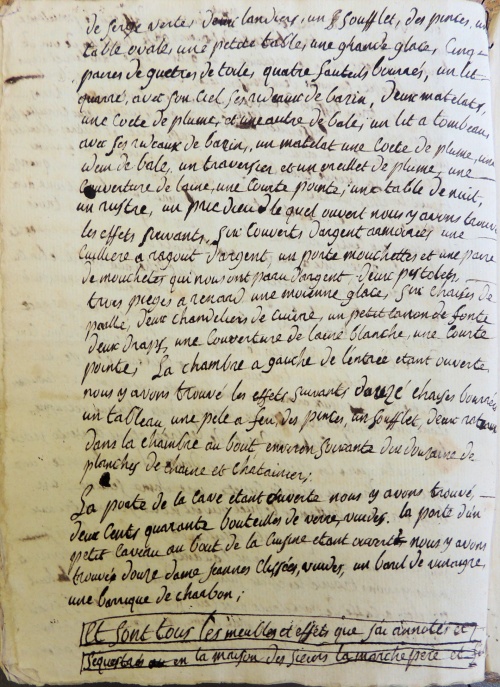 de serge vertes deux landiers, un soufflet, des pinces, un
table ovale, une petite table, une grande glace, Cinq
paires de guetres de toile, quatre fauteuils bourrés, un lit
quarré, avec son Ciel ses rideaux de bazin, deux matelats,
une Coete de plume, et une autre de bale, un lit a tombeau,
avec ses rideaux de bazin, un matelat une Coete de plume, une
idem de bale, un traversier et un oreillet de plume, une
Couverture de laine, une Courte pointe, une table de nuit,
un rustre, un pric dieu le quel ouvert nous y avons trouvé
les effets suivants, six Couverts d'argent armoiriés une
Cuilliere a ragout d'argent, un porte mouchettes et une paire
de mouchetes qui nous ont paru d'argent, deux pistolets
trois pieges a renard une moienne glace, six chaises de
paille, deux chandeliers de cuivre, un petit canon de fonte
deux draps, une Couverture de laine blanche, une Courte
pointe; La chambre a gauche de lentree etant ouverte,
nous y avons trouvé les effets suivants chaises bourrées
un tableau, une pele a feu, des pinces, un soufflet, deux
dans la chambre au bout environ soixante dix douzaine de
planches de chaine et chatainier;
La porte de la cave etant ouverte nous y avons trouvé,
deux Cents quarante bouteilles de verre, vuides. la porte d'un
petit Caveau au bout de la Cuisine etant ouverte nous y avons
trouvés douze dame jeannes Clissées, vuides, un baril de vinaigre,
une barrique de charbon;
Et sont tous les meubles et effets que j'ai annotés et
sequestrés en la maison des sieurs la marche pere et